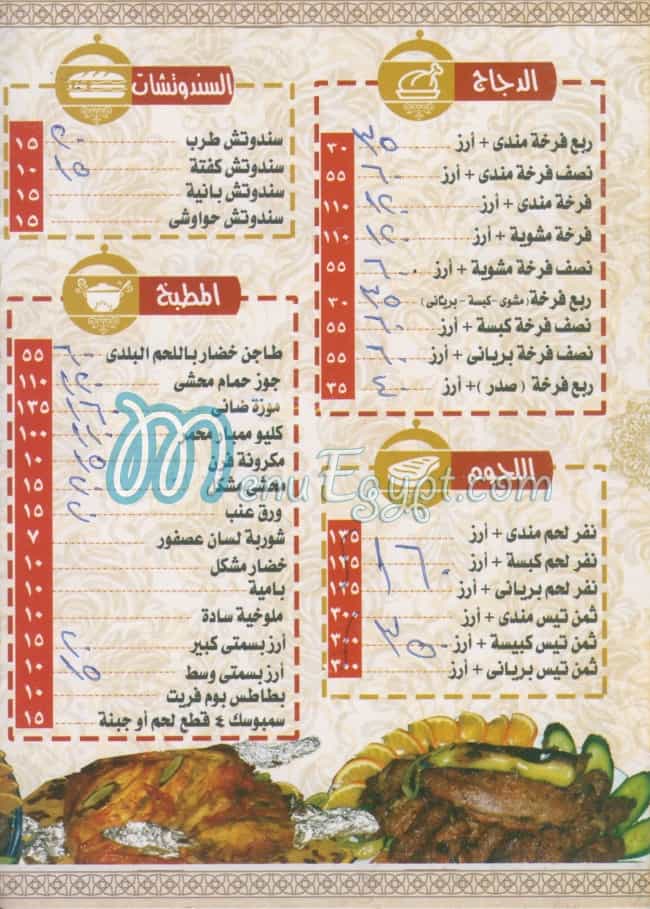 الدجاج
ربع فرخة مندى + أرز ٣٠
نصف فرخة مندى + أرز ٥٥
فرخة مندى + أرز ١١٠
فرخة مشوية + أرز ١١٠
نصف فرخة مشوية + أرز ٥٥
ربع فرخة (مشوى - كبسة - بريانى) ٣٠
نصف فرخة كبسة + أرز ٥٥
نصف فرخة بريانى + أرز ٥٥
ربع فرخة (صدر) + أرز ٣٥
اللحوم
نفر لحم مندى + أرز ١٣٥
نفر لحم كبسة + أرز ١٣٥
نفر لحم بريانى + أرز ١٣٥
ثمن تيس مندى + أرز
ثمن تيس كبيسة + أرز
ثمن تيس بريانى + أرز
السندوتشات
سندوتش طرب ١٥
سندوتش كفتة ١٠
سندوتش بانية ١٥
سندوتش حواوشى ١٥
المطبخ
طاجن خضار باللحم البلدى ٥٥
جوز حمام محشى ١١٠
موزة ضانى ١٣٥
كليو ممبار محمر ١٠٠
مكرونة فرن ١٠
محشى مشكل ١٥
ورق عنب ١٥
شوربة لسان عصفور ٧
خضار مشكل ١٠
بامية ١٠
ملوخية سادة ١٠
أرز بسمتى كبير ١٥
أرز بسمتى وسط ١٠
بطاطس بوم فريت ١٠
سمبوسك ٤ قطع لحم أو جبنة ١٥
MenuEgypt.com